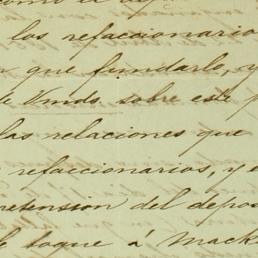 los refaccionario
que fundarlo, y
de Vmds. sobre este p
las relaciones que
refaccionarios, y e
retension del depos
le toque á Mack